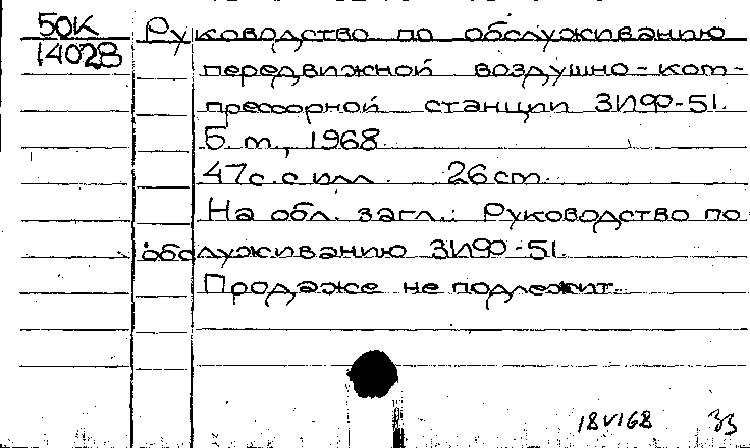 50К Руководство по обслуживанию
14028 передвижной воздушно-ком-
прессорной станции ЗИФ-51.
Б. м., 1968
47с. с илл. 26 см.
На обл. загл.: Руководство по
обслуживанию ЗИФ-51.
Продаже не подлежит.
18 VI 68 33